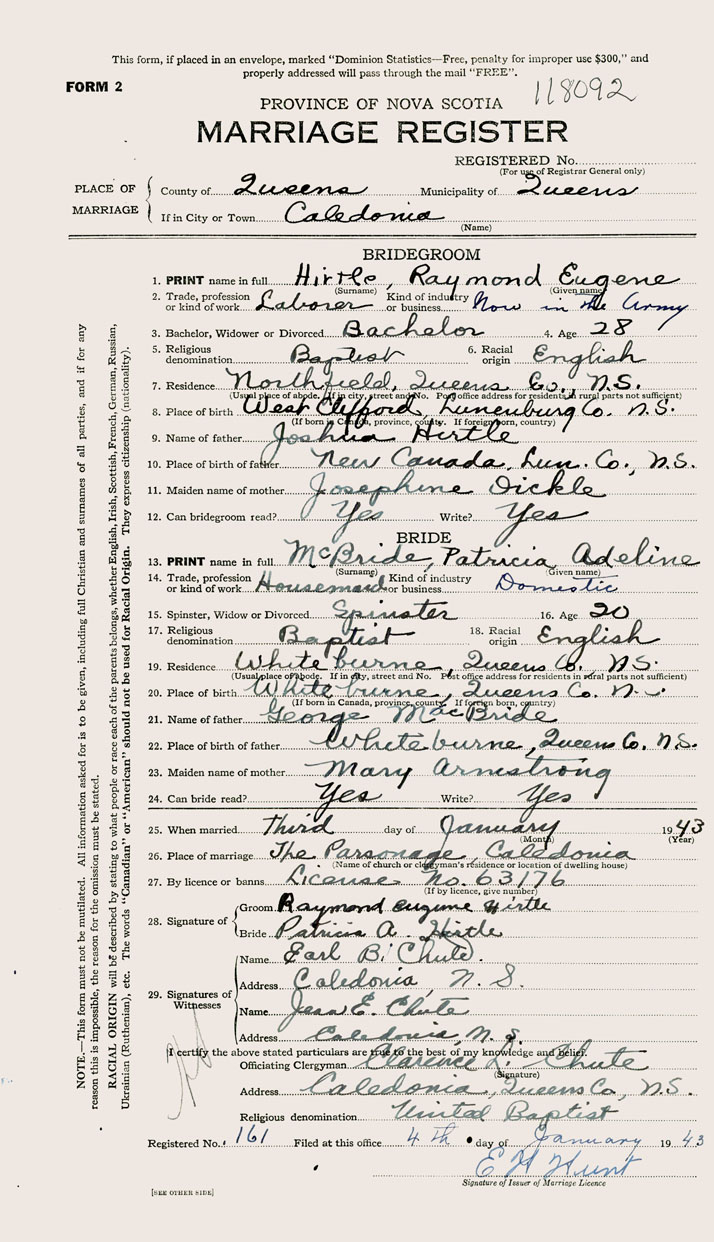 This form, if placed in an envelope, marked “Dominion Statistics—Free, penalty for improper use $300,” and
properly addressed will pass through the mail “FREE”.
FORM 2
118092
PROVINCE OF NOVA SCOTIA
MARRIAGE REGISTER
REGISTERED No.
(For use of Registrar General only)
PLACE OF MARRIAGE
County of Queens Municipality of Queens
If in City or Town Caledonia
(Name)
BRIDEGROOM
1. PRINT name in full Hirtle, Raymond Eugene
(Surname) (Given name)
2. Trade, profession or kind of work Laborer Kind of industry or business Now in the Army
3. Bachelor, Widower or Divorced Bachelor 4. Age 28
5. Religious denomination Baptist 6. Racial origin English
7. Residence Northfield, Queens Co., N.S.
(Usual place of abode. If in city, street and No. Post office address for residents in rural parts not sufficient)
8. Place of birth West Clyfford, Lunenburg Co. N.S.
(If born in Canada, province, county. If foreign born, country)
9. Name of father Joshua Hirtle
10. Place of birth of father New Canada, Lun. Co., N.S.
11. Maiden name of mother Josephine Dickle
12. Can bridegroom read? Yes Write? Yes
BRIDE
13. PRINT name in full McBride, Patricia Adeline
(Surname) (Given name)
14. Trade, profession or kind of work Housemaid Kind of industry or business Domestic
15. Spinster, Widow or Divorced Spinster 16. Age 20
17. Religious denomination Baptist 18. Racial origin English
19. Residence Whiteburne, Queens Co. N.S.
(Usual place of abode. If in city, street and No. Post office address for residents in rural parts not sufficient)
20. Place of birth Whiteburne, Queens Co. N.S.
(If born in Canada, province, county. If foreign born, country)
21. Name of father George MacBride
22. Place of birth of father Whiteburne, Queens Co. N.S.
23. Maiden name of mother Mary Armstrong
24. Can bride read? Yes Write? Yes
25. When married Third day of January 1943
(Month) (Year)
26. Place of marriage The Parsonage, Caledonia
(Name of church or clergyman's residence or location of dwelling house)
27. By licence or banns License No. 63176
(If by licence, give number)
28. Signature of
Groom Raymond Eugene Hirtle
Bride Patricia A. Hirtle
29. Signatures of Witnesses
Name Earl B. Chute.
Address Caledonia, N.S.
Name Jean E. Chute
Address Caledonia, N.S.
I certify the above stated particulars are true to the best of my knowledge and belief.
Officiating Clergyman Clarence L. Chute
(Signature)
Address Caledonia, Queens Co., N.S.
Religious denomination United Baptist
Registered No. 161 Filed at this office 4th day of January 1943
E H Hunt
Signature of Issuer of Marriage Licence
[SEE OTHER SIDE]
NOTE.—This form must not be mutilated. All information asked for is to be given, including full Christian and surnames of all parties, and if for any
reason this is impossible, the reason for the omission must be stated.
RACIAL ORIGIN will be described by stating to what people or race each of the parents belongs, whether English, Irish, Scottish, French, German, Russian,
Ukrainian (Ruthenian), etc. The words “Canadian” or “American” should not be used for Racial Origin. They express citizenship (nationality).